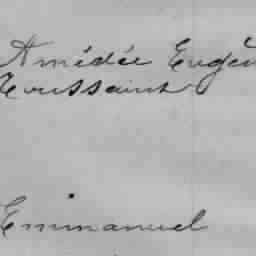 Amédée Eugèn
Toussaint
Emmanuel